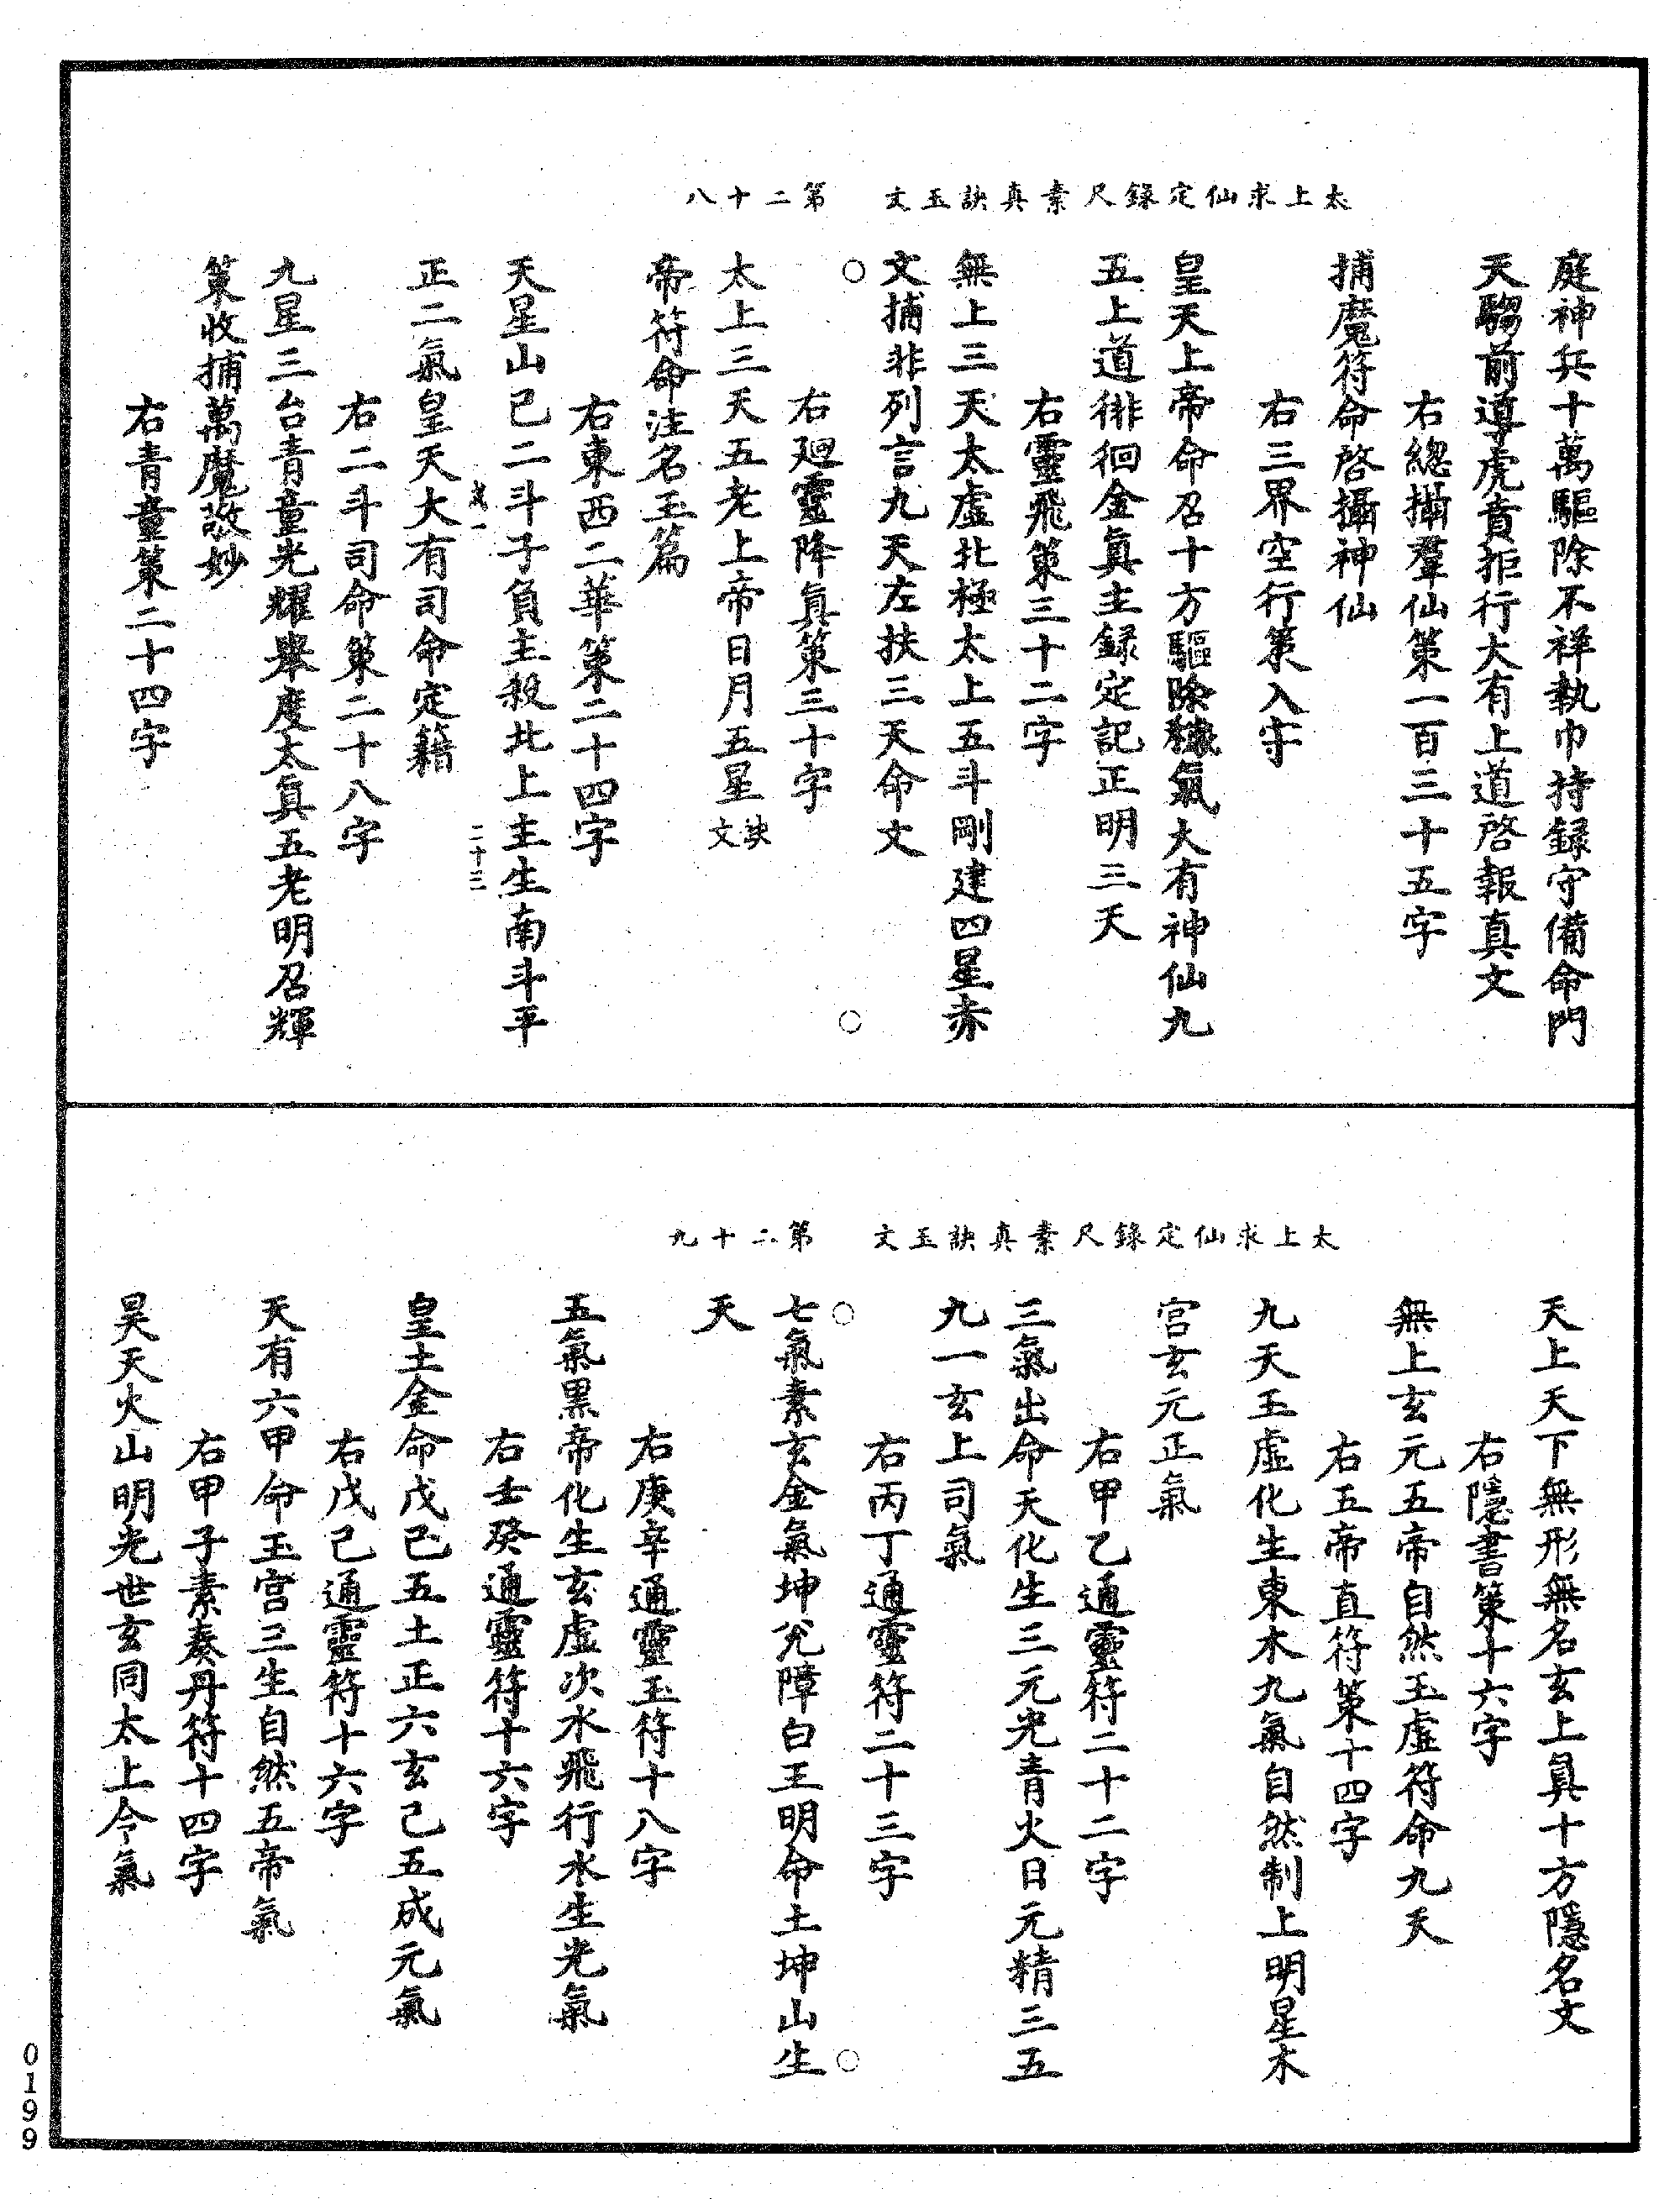 太上求仙定錄尺素真訣玉文　第二十八
庭神兵十萬驅除不祥執巾持録守備命門
天騶前導虎賁拒行大有上道啓報真文
右總攝羣仙策一百三十五字
捕魔符命啓攝神仙
右三界空行策入字
皇天上帝命召十方驅除穢氣大有神仙九
五上道徘徊金真主録定記正明三天
右靈飛策三十二字
無上三天太虛北極太上五斗剛建四星赤
文捕非列言九天左扶三天命文
右廻靈降真策三十字
太上三天五老上帝日月五星訣文
帝符命注名玉篇
右東西二華策二十四字
天星山已二斗子負主殺北上主生南斗平
一
二十三
正二氣皇天大有司命定籍
右二斗司命策二十八字
九星三台青童光耀舉度太真五老明召輝
策收捕萬魔敬妙
右青童策二十四字
太上求仙定錄尺素真訣玉文　第二十九
天上天下無形無名玄上真十方隱名文
右隱書策十六字
無上玄元五帝自然玉虛符命九天
右五帝直符策十四字
九天王虛化生東木九氣自然制上明星木
宫玄元正氣
右甲乙通靈符二十二字
三氣出命天化生三元光青火日元精三五
九一玄上司氣
右丙丁通靈符二十三字
七氣素玄金氣坤兊障白王明命土坤山生
天
右庚辛通靈玉符十八字
五氣黑帝化生玄虛次水飛行水生光氣
右壬癸通靈符十六字
皇土金命戊己五土正六玄己五成元氣
右戊己通靈符十六字
天有六甲命玉宫三生自然五帝氣
右甲子素奏丹符十四字
昊天火山明光世玄同太上令氣
0199